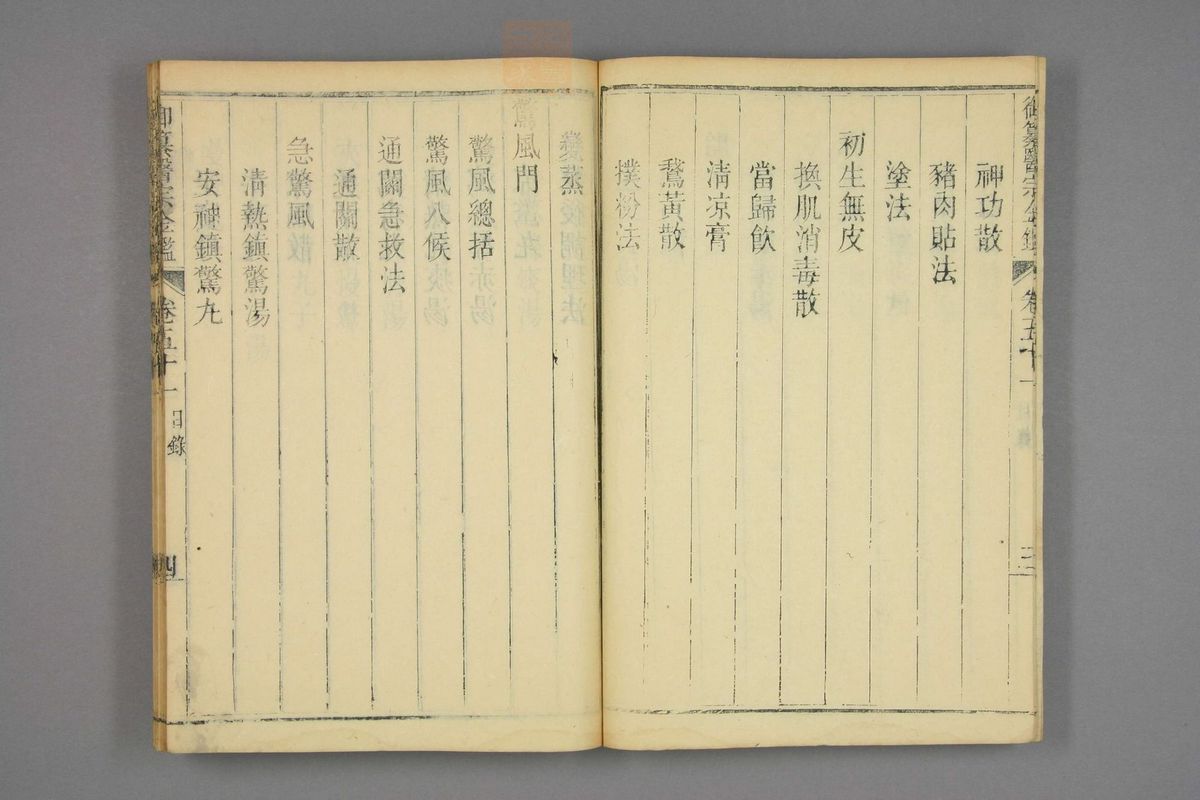 御纂醫宗金鑑
卷五十一
神功散
豬肉貼法
塗法
初生無皮
換肌消毒散
當歸飲
清凉膏
鵞黃散
撲粉法
變蒸
驚風門
驚風總括
驚風八候
通關急救法
通關散
急驚風
清熱鎮驚湯
安神鎮驚丸
御纂醫宗金鑑
卷五十一
目錄
四